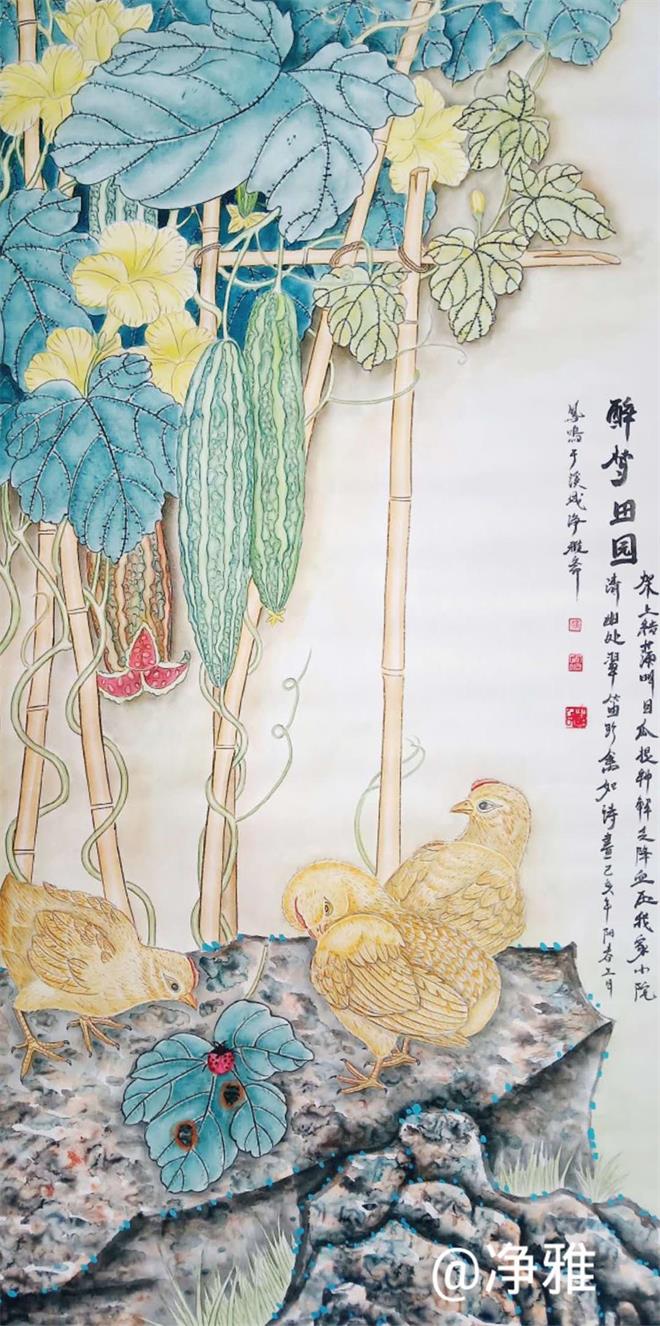 醉梦田园
架上结满明目瓜提神解乏降血压我家小院
清幽处翠禽如诗画己亥年阳春三月
凤鸣于溪城净雅斋
@净雅